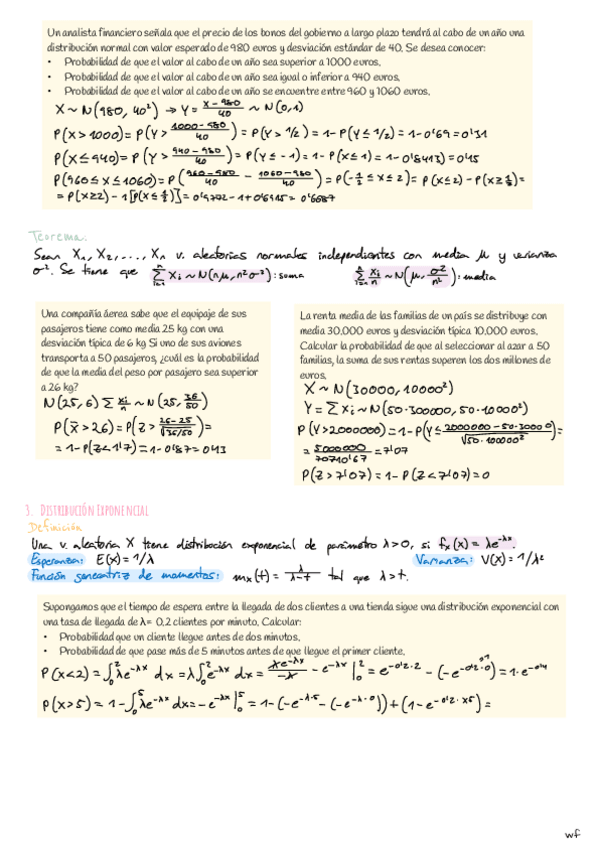 Un analista financiero señala que el precio de los bonos del gobierno a largo plazo tendrá al cabo de un año una
distribución normal con valor esperado de 980 euros y desviación estándar de 40. Se desea conocer:
• Probabilidad de que el valor al cabo de un año sea superior a 1000 euros.
• Probabilidad de que el valor al cabo de un año sea igual o inferior a 940 euros.
• Probabilidad de que el valor al cabo de un año se encuentre entre 960 y 1060 euros.
X ~ N(980, 40²) → Y = (x-980)/40 ~ N(0,1)
P(X>1000) = P(Y > (1000-980)/40) = P(Y > 1/2) = 1-P(Y≤1/2) = 1-0'69 = 0'31
P(X≤940) = P(Y > (940-980)/40) = P(Y≤-1) = 1-P(X≤1) = 1-0'8413 = 0'15
P(960≤X≤1060) = P((960-980)/40 - (1060-980)/40) = P(-1/2 ≤ X ≤ 2) = P(X≤2) - P(X≥1/2) =
= P(X≥2) - 1[P(X≤1/2)] = 0'9772 - 1 + 0'6915 = 0'6687
Teorema:
Sean X₁, X₂, ..., Xn v. aleatorias normales independientes con media μ y varianza
σ². Se tiene que Σ Xi ~ N(nμ, n²σ²): suma Σ Xi/n ~ N(μ, σ²/n²): media
Una compañía áerea sabe que el equipaje de sus
pasajeros tiene como media 25 kg con una
desviación típica de 6 kg Si uno de sus aviones
transporta a 50 pasajeros, ¿cuál es la probabilidad
de que la media del peso por pasajero sea superior
a 26 kg?
N(25, 6) Σ Xi/n ~ N(25, 36/50)
P(X̄>26) = P(Z > (26-25)/√(36/50)) =
= 1-P(Z<1'17) = 1-0'87 = 0'13
La renta media de las familias de un país se distribuye con
media 30.000 euros y desviación típica 10.000 euros.
Calcular la probabilidad de que al seleccionar al azar a 50
familias, la suma de sus rentas superen los dos millones de
euros.
X ~ N(30000, 10000²)
Y = Σ Xi ~ N(50·300000, 50·10000²)
P(Y>2000000) = 1-P(Y≤ (2000000-50·30000)/√(50·10000²)) =
= 5000000/70710'67 = 7'07
P(Z>7'07) = 1-P(Z<7'07) = 0
3. Distribución Exponencial
Definición
Una v. aleatoria X tiene distribución exponencial de parámetro λ>0, si fx(x) = λe^-λx.
Esperanza: E(x) = 1/λ Varianza: V(X) = 1/λ²
Función generatriz de momentos: mx(t) = λ/(λ-t) tal que λ>t.
Supongamos que el tiempo de espera entre la llegada de dos clientes a una tienda sigue una distribución exponencial con
una tasa de llegada de λ= 0,2 clientes por minuto. Calcular:
• Probabilidad que un cliente llegue antes de dos minutos.
• Probabilidad de que pase más de 5 minutos antes de que llegue el primer cliente.
P(X<2) = ∫₀² λe^-λx dx = λ∫₀² e^-λx dx = λe^-λx/-λ - e^-λx |₀² = e^-0'2·2 - (-e^-0'2·0) = 1·e^-0'4
P(X>5) = 1-∫₀⁵ λe^-λx dx = -e^-λx |₀⁵ = 1-(-e^-λ·5 - (-e^-λ·0)) + (1-e^-0'2·x5) =
wf